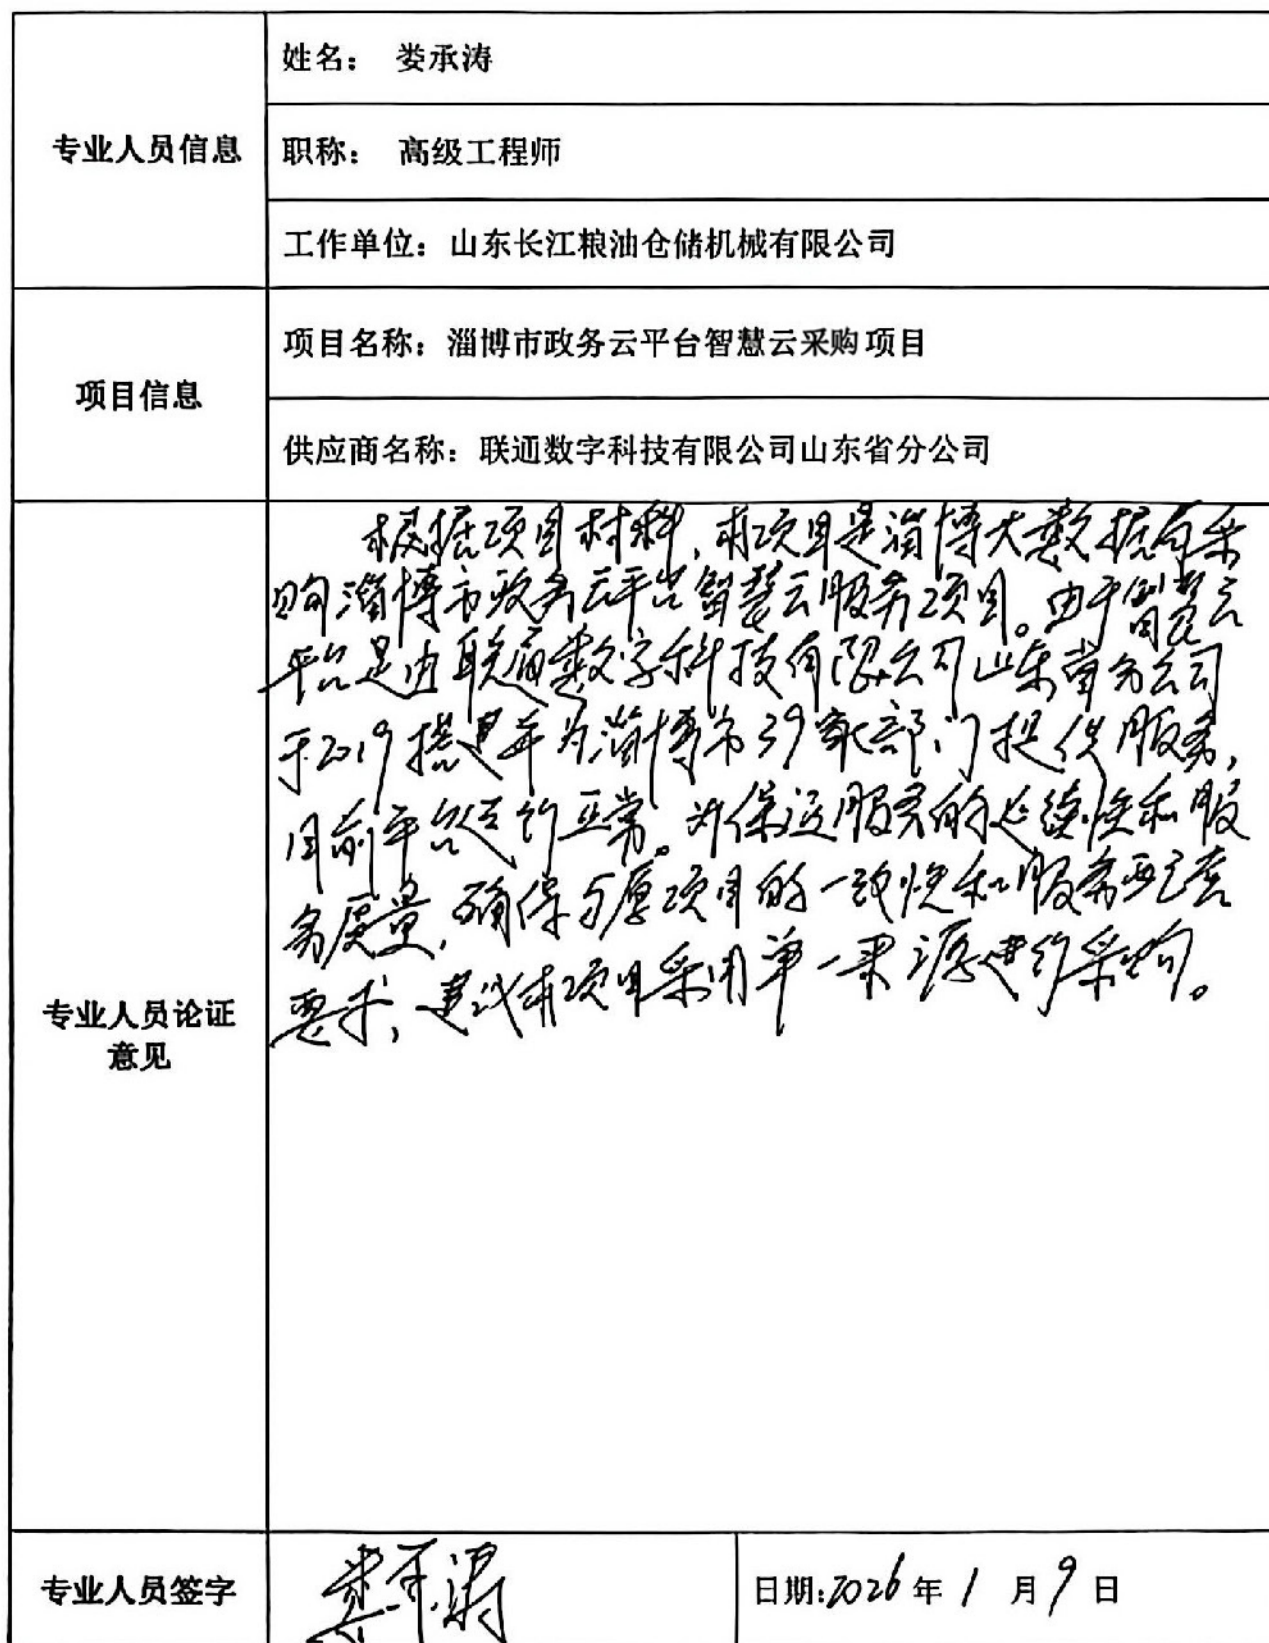 专业人员信息
姓名： 娄承涛
职称： 高级工程师
工作单位：山东长江粮油仓储机械有限公司
项目信息
项目名称：淄博市政务云平台智慧云采购项目
供应商名称：联通数字科技有限公司山东省分公司
专业人员论证
意见
根据项目材料，本项目是淄博大数据局采
购淄博市政务云平台智慧云服务项目。由于智慧云
平台是由联通数字科技有限公司山东省分公司
于2019搭建并为淄博市39家部门提供服务，
目前平台运行正常。为保证服务的延续性和服
务质量，确保与原项目的一致性和服务配套
要求，建议本项目采用单一来源进行采购。
专业人员签字
娄承涛
日期:2026年1月9日